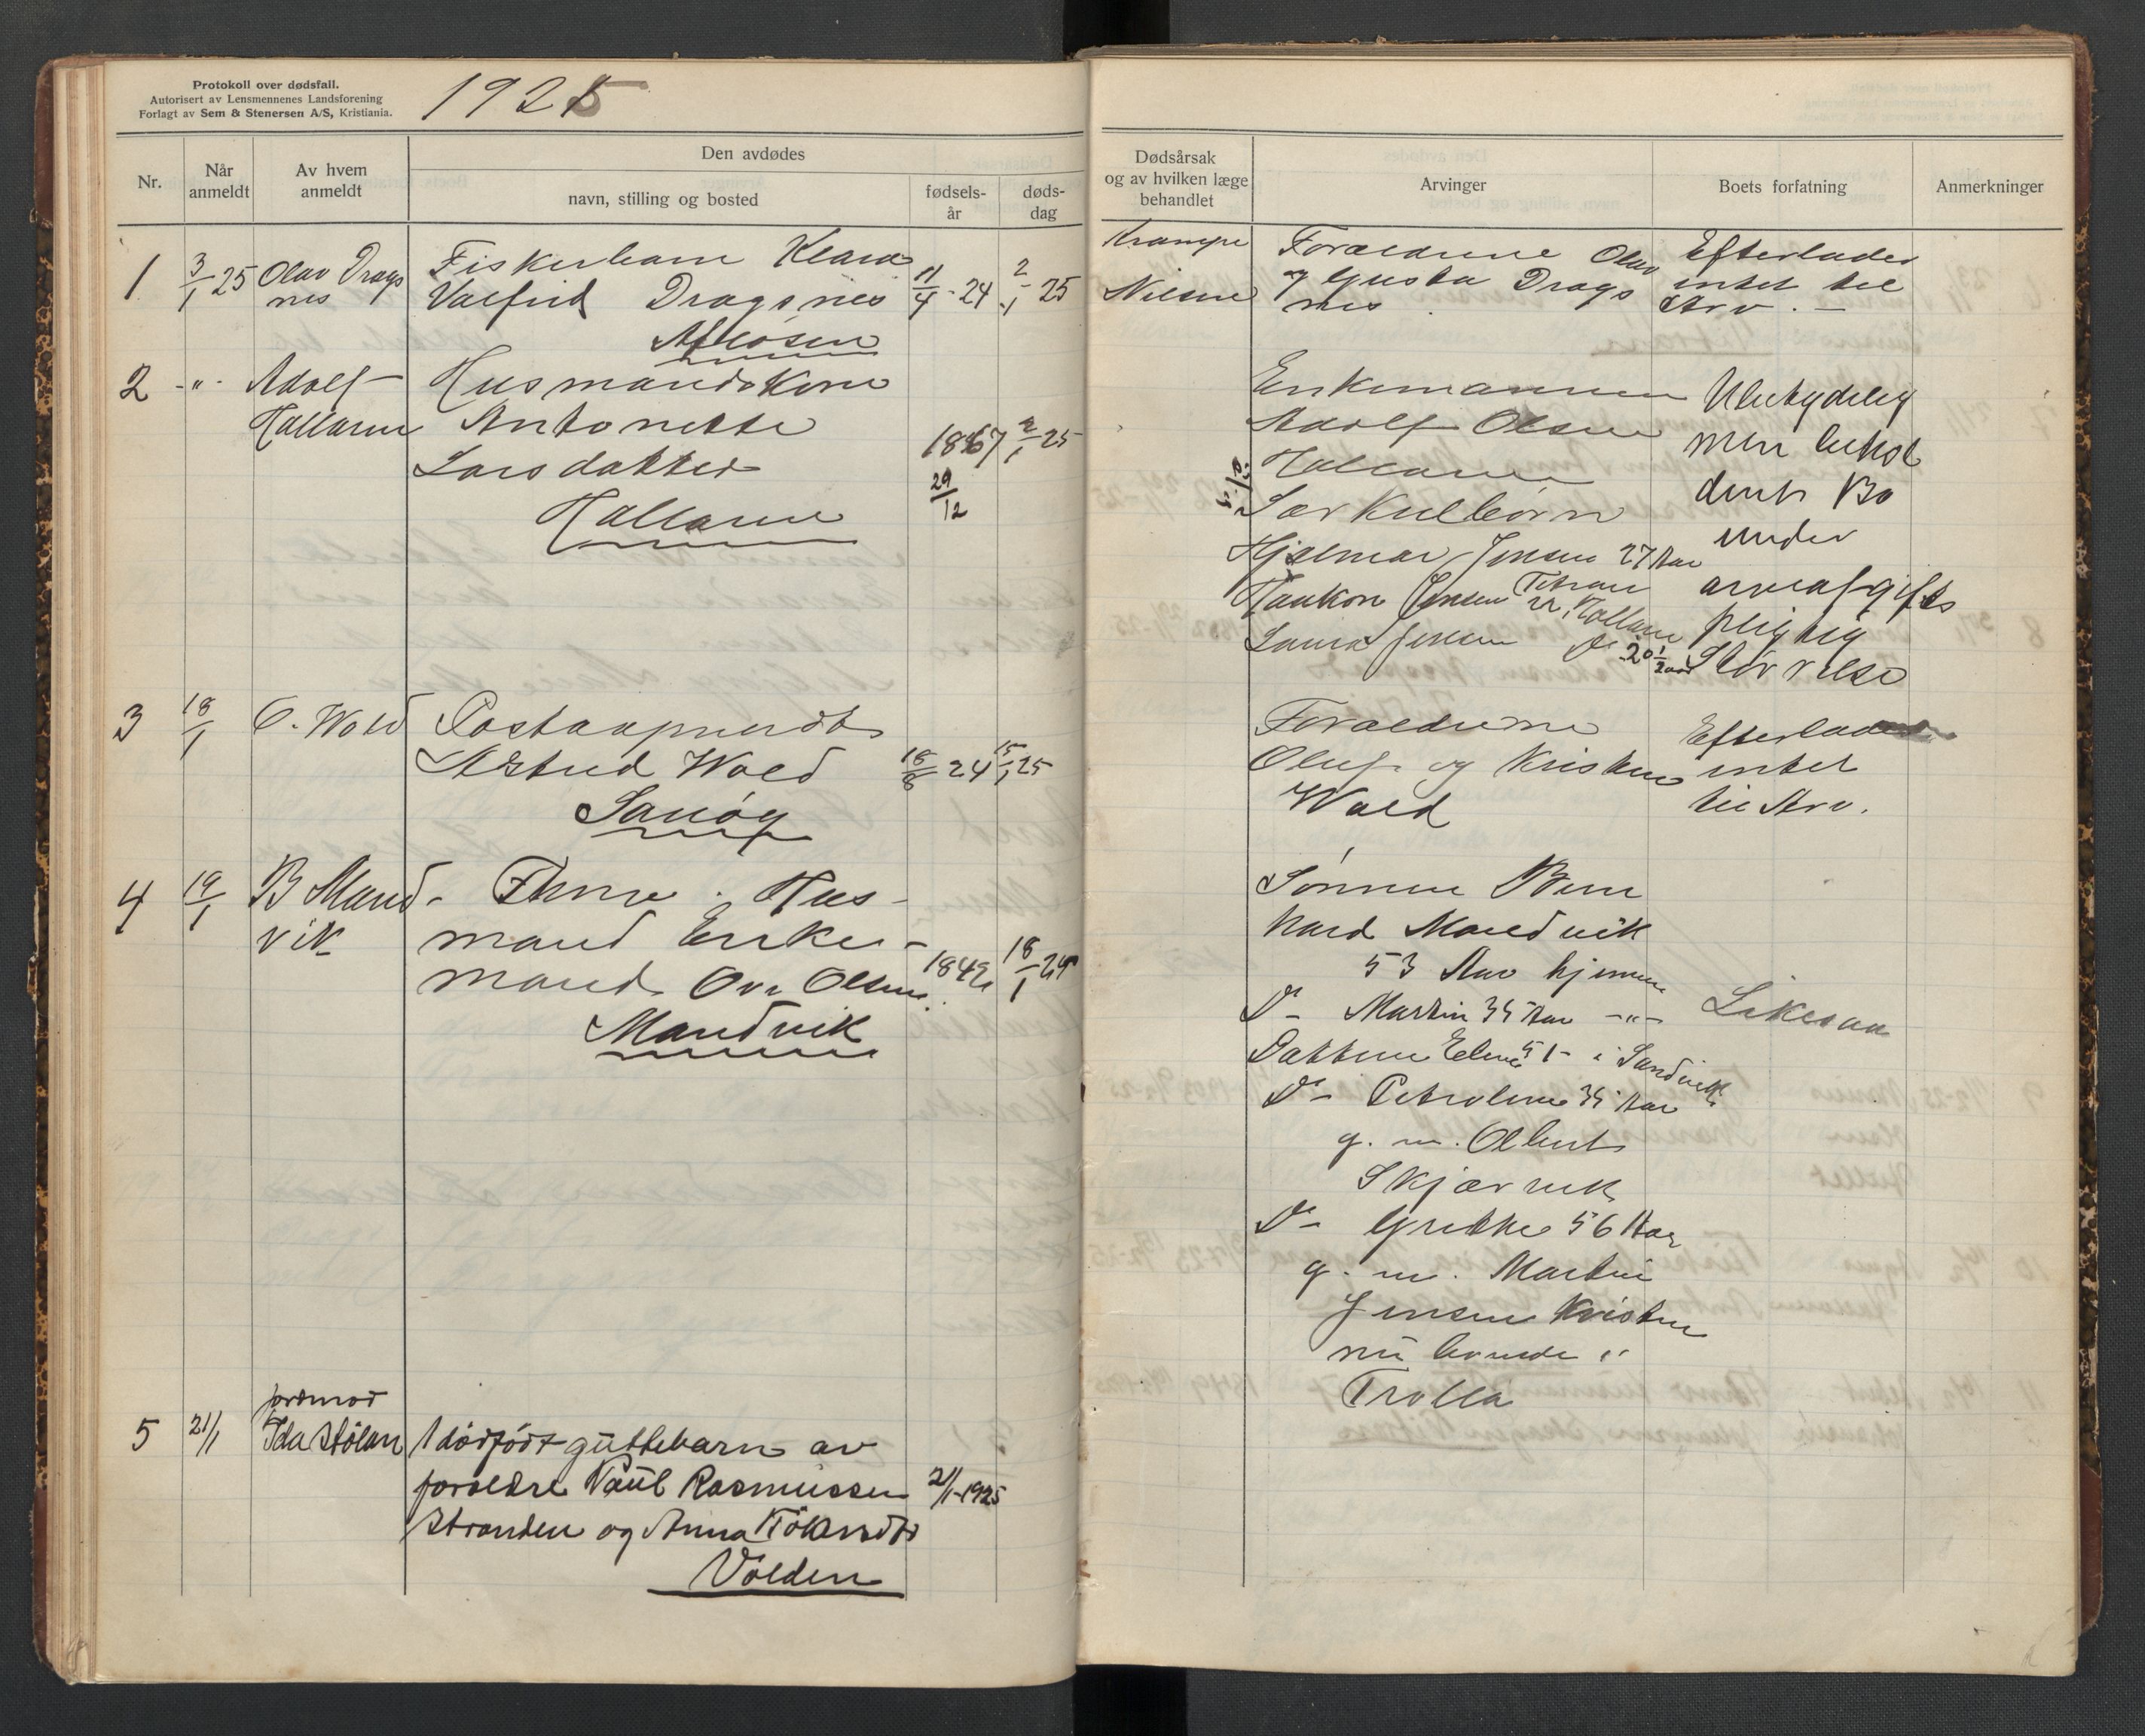 Protokoll over dødsfall.
Autorisert av Lensmennenes Landsforening
Forlagt av Sem & Stenersen A/S, Kristiania.
1925
Nr.
Når anmeldt
Av hvem anmeldt
Den avdødes
navn, stilling og bosted
fødsels-år
døds-dag
Dødsårsak og av hvilken læge behandlet
Arvinger
Boets forfatning
Anmerkninger
1
3/1 25
Olav Drags
nes
Fiskerbarn Klara
Valfrid Dragsnes
11/4 - 24
2/1 25
Krampe
Nilsen
Forældrene Olav
og Gusta Drags
nes.
Efterlader
intet til
Arv. -
2
-"-
Adolf
Hallaren
Husmandskone
Antonette
Larsdatter
Hallaren
1867
29/12
2/1 25
Enkemannen
Adolf Olsen
Hallaren
Særkulbørn
Hjalmar Jensen 27 Aar
Haakon Jensen 22, Hallaren
Titran
Laura Jensen Do 20 1/2 aar
Ubetydelig
men behol
dent Bo
under
arveafgifts
pligtig
Størrelse
3
18/1
O. Wold
Postaapnerdt
Astrid Wold
Sauøy
18/8 24
15/1 25
Forældrene
Oluf og Kristine
Wold
Efterlader
intet
til Arv.
4
19/1
B Mand-
vik
Fhnv. Hus-
mand Enke-
mand Ove Olsen
Mandvik
1842
18/1 24
Sønnen Bern
hard Mandvik
53 Aar hjemme
Do - Martin 35 Aar -"-
Datteren Eline 51 - i Sandvik
Do - Petroline 35 Aar
g. m. Olbert
Skjærvik
Do - Grethe 56 Aar
g. m. Martin
Jensen Kristen
nu boende i
Trolla
Likesaa
5
21/1
jormor
Ida Stølan
1 dødfødt guttebarn av
forældre Paul Rasmussen
Stranden og Anna
Volden
21/1-1925